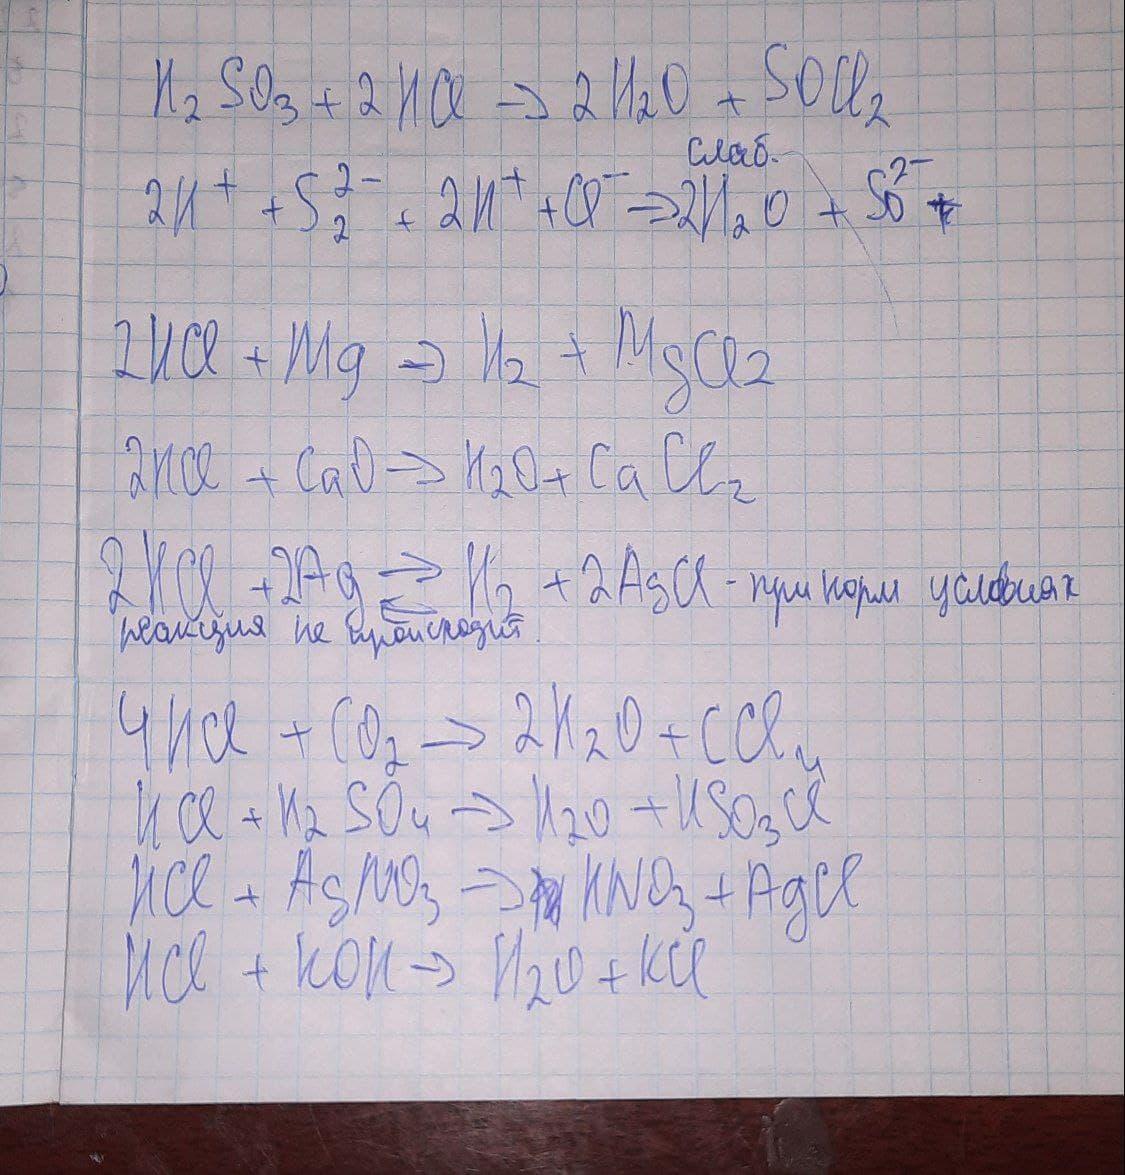 H₂SO₃ + 2HCl → 2H₂O + SOCl₂
слаб.
2H⁺ + S₂²⁻ + 2H⁺ + Cl⁻ → 2H₂O + SO²⁻ +
2HCl + Mg → H₂ + MgCl₂
2HCl + CaO → H₂O + CaCl₂
2HCl + 2Ag ⇄ H₂ + 2AgCl - при норм условиях
реакция не происходит.
4HCl + CO₂ → 2H₂O + CCl₄
HCl + H₂SO₄ → H₂O + HSO₃Cl
HCl + AgNO₃ → HNO₃ + AgCl
HCl + KOH → H₂O + KCl